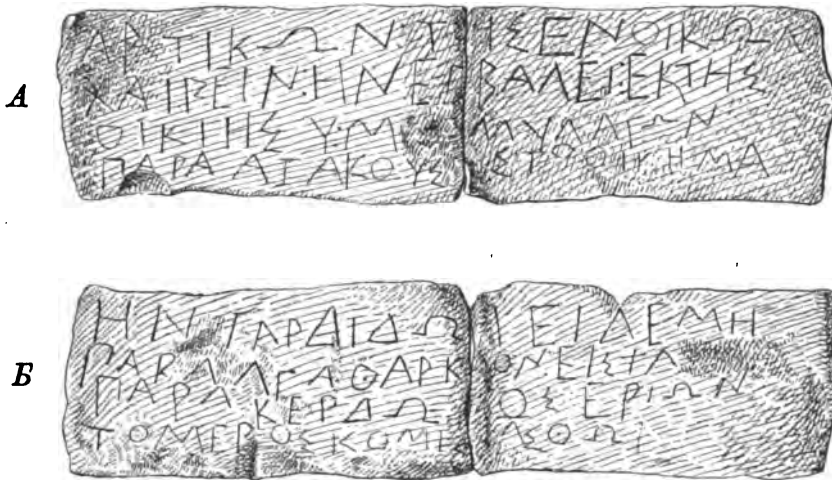 А
ΑΡΤΙΚΩΝ·Τ ΙΣΕΝΟΙΚΩΛ
ΧΑΙΡΕΙΝ:ΗΝΕΓ ΒΑΛΕΙ:ΕΚΤΗΣ
ΟΙΚΙΗΣΥ·Μ ΜΥΛΛΓΩΝ
ΠΑΡΑΑΤΑΚΟΥΣ ΕΤΟΟΙΚΗΜΑ
Б
ΗΝΓΑΡΔΙΔΩ ΙΕΙΔΕΜΗ
ΠΑΡΑΑΓΑΘΑΡΚ ΟΝΕΙΣΤΑ
ΠΑΡΑΚΕΡΔΩ ΟΣΕΡΙΩΝ
ΤΟΜΕΡΟΣΚΟΜΙ ΑΣΘΩΙ